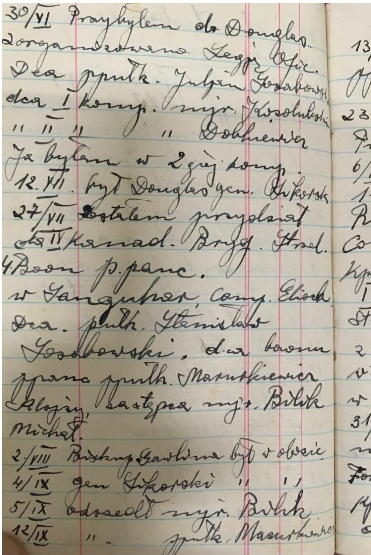 30/VI Przybyłem do Douglas.
Zorganizowano Legję Ofic.
Dca ppułk. Juljan Sosabowski
dca I komp. mjr. Kosolubski
" II " " Dobkiewicz
Ja byłem w 2giej komp.
12. VII. był Douglas gen. Sikorski
27/VII zostałem przydział
do II Kanad. Bryg. Strzel.
4 Baon p.panc.
w Sanquhar, camp. Eliock
Dca. pułk. Stanisław
Sosabowski. dca baonu
ppanc ppułk. Mazurkiewicz
Alojzy, zastępca mjr. Bilik
Michał.
2/VIII Biskup Gawlina był w obozie
4/IX gen Sikorski " "
5/IX odszedł mjr. Bilik
12/IX " ppułk. Mazurkiewicz
13
23
6/I
1
R
Co
I
St
2
w
w
31/